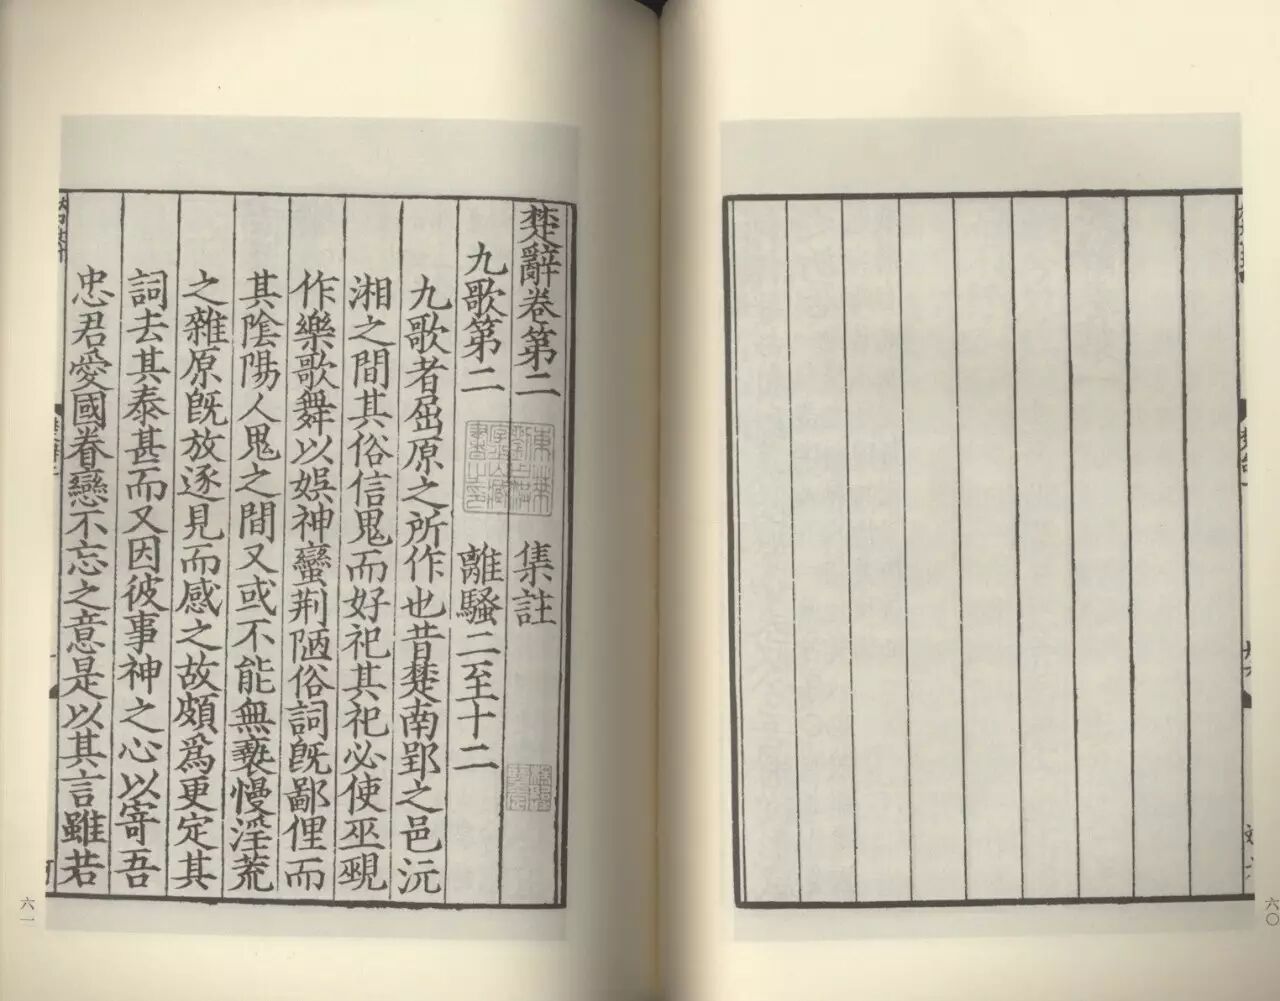 楚辭卷第二 集註
九歌第二 離騷二至十二
九歌者屈原之所作也昔楚南郢之邑沅
湘之間其俗信鬼而好祀其祀必使巫覡
作樂歌舞以娛神蠻荆陋俗詞旣鄙俚而
其陰陽人鬼之間又或不能無褻慢淫荒
之雜原旣放逐見而感之故頗爲更定其
詞去其泰甚而又因彼事神之心以寄吾
忠君愛國眷戀不忘之意是以其言雖若
六〇
六一